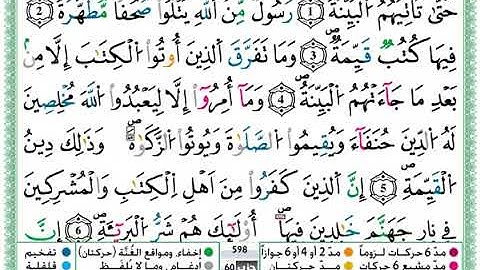 حَتَّىٰ تَأْتِيَهُمُ الْبَيِّنَةُۙ ﴿1﴾ رَسُولٌ مِّنَ اللّٰهِ يَتْلُوا صُحُفًا مُّطَهَّرَةًۙ ﴿2﴾
فِيهَا كُتُبٌ قَيِّمَةٌؕ ﴿3﴾ وَمَا تَفَرَّقَ الَّذِينَ أُوتُوا الْكِتَابَ إِلَّا مِنْ
بَعْدِ مَا جَاءَتْهُمُ الْبَيِّنَةُؕ ﴿4﴾ وَمَا أُمِرُوا إِلَّا لِيَعْبُدُوا اللّٰهَ مُخْلِصِينَ
لَهُ الدِّينَ حُنَفَاءَ وَيُقِيمُوا الصَّلٰوةَ وَيُؤْتُوا الزَّكٰوةَ وَذٰلِكَ دِينُ
الْقَيِّمَةِؕ ﴿5﴾ إِنَّ الَّذِينَ كَفَرُوا مِنْ اَهْلِ الْكِتَابِ وَالْمُشْرِكِينَ
فِي نَارِ جَهَنَّمَ خَالِدِينَ فِيهَاؕ أُولٰئِكَ هُمْ شَرُّ الْبَرِيَّةِؕ ﴿6﴾ إِنَّ
مدّ 6 حركات لزوماً مدّ 2 أو 4 أو 6 جوازاً إخفاء، ومواقع الغُنَّة (حركتان) تفخيم
مدّ مشبع 6 حركات مدّ حركتان إدغام، وما لا يُلفَظ قلقلة
598
60